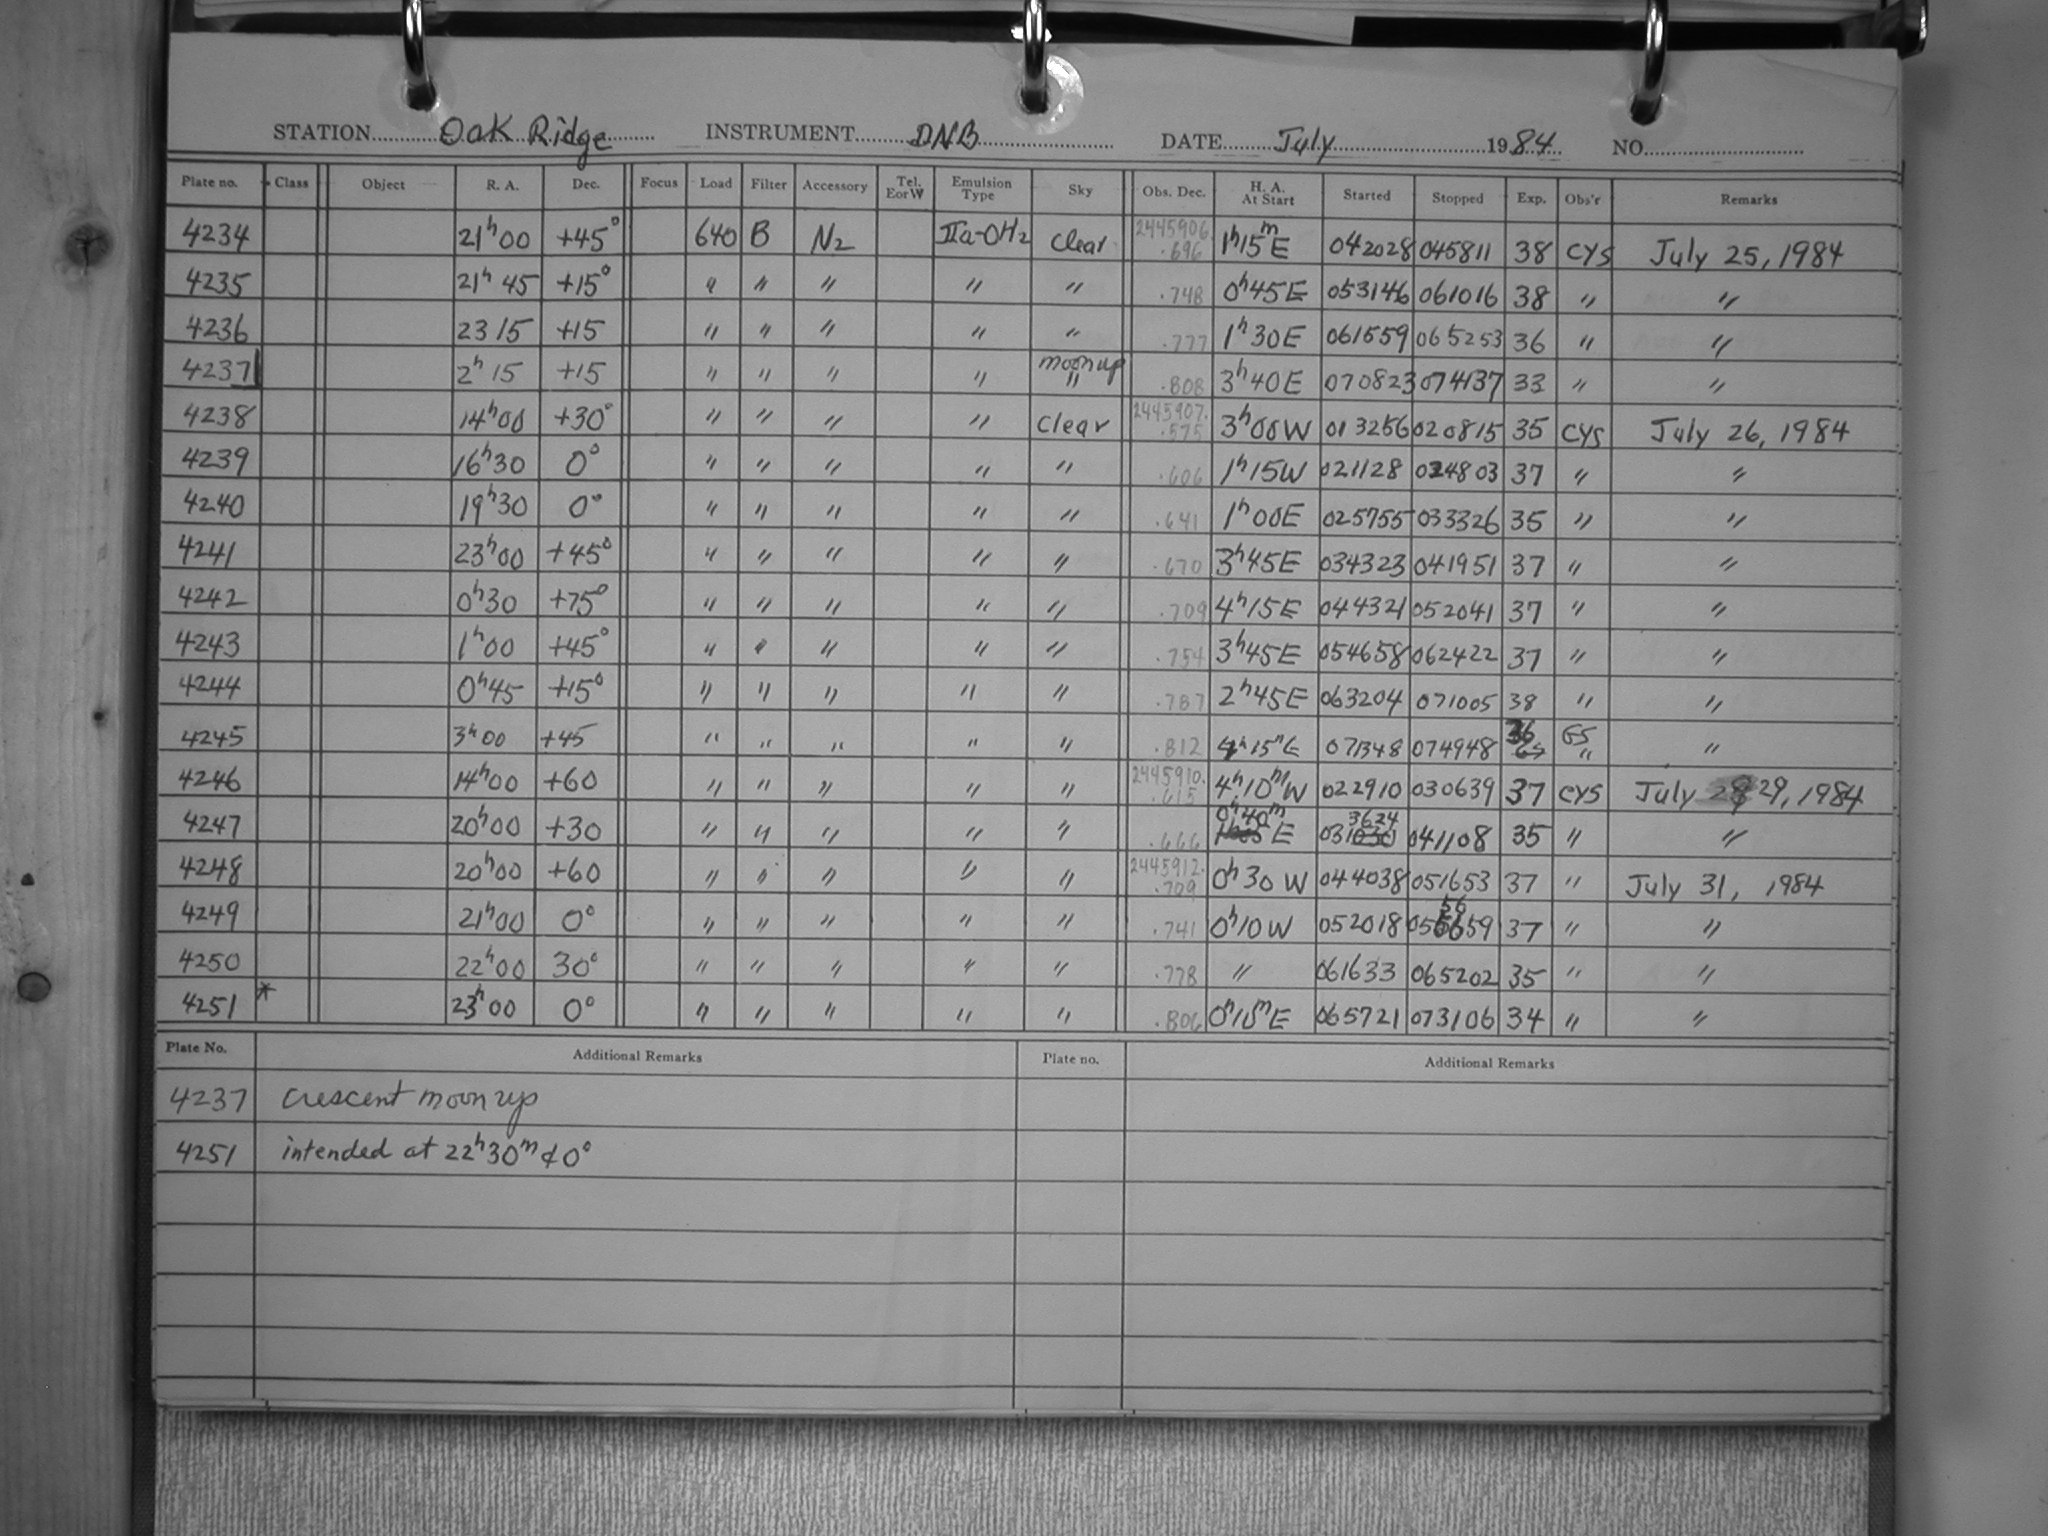 STATION Oak Ridge INSTRUMENT DNB DATE July 1984 NO.
Plate no. Class Object R. A. Dec. Focus Load Filter Accessory Tel. E or W Emulsion Type Sky Obs. Dec. H. A. At Start Started Stopped Exp. Obs'r Remarks
4234 21h00 +45° 640 B N2 IIa-OH2 clear 2445906.696 1h15mE 042028 045811 38 CYS July 25, 1984
4235 21h 45 +15° " " " " " .748 0h45E 053146 061016 38 " "
4236 23 15 +15 " " " " " .777 1h30E 061559 065253 36 " "
4237 2h 15 +15 " " " " moon up " .808 3h40E 070823 074137 33 " "
4238 14h00 +30° " " " " clear 2445907.575 3h00W 013256 020815 35 CYS July 26, 1984
4239 16h30 0° " " " " " .606 1h15W 021128 024803 37 " "
4240 19h30 0° " " " " " .641 1h00E 025755 033326 35 " "
4241 23h00 +45° " " " " " .670 3h45E 034323 041951 37 " "
4242 0h30 +75° " " " " " .709 4h15E 044321 052041 37 " "
4243 1h00 +45° " " " " " .754 3h45E 054658 062422 37 " "
4244 0h45 +15° " " " " " .787 2h45E 063204 071005 38 " "
4245 3h00 +45 " " " " " .812 4h15mE 071348 074948 36 GS " "
4246 14h00 +60 " " " " " 2445910.615 4h10mW 022910 030639 37 CYS July 29, 1984
4247 20h00 +30 " " " " " .666 0h40m E 031030 3624 041108 35 " "
4248 20h00 +60 " " " " " 2445912.709 0h30W 044038 051653 37 " July 31, 1984
4249 21h00 0° " " " " " .741 0h10W 052018 055659 56 37 " "
4250 22h00 30° " " " " " .778 " 061633 065202 35 " "
4251 * 23h00 0° " " " " " .806 0h15mE 065721 073106 34 " "
Plate No. Additional Remarks Plate no. Additional Remarks
4237 crescent moon up
4251 intended at 22h30m & 0°